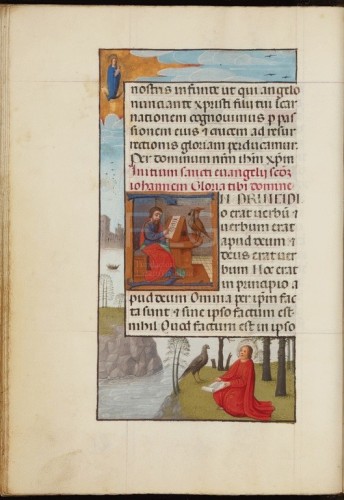 nostris infunde ut qui angelo
nunciante xpristi filii tui icar
nationem cognouimus p pas
sionem eius & crucem ad resur
rectionis gloriam perducamur.
Per dominum nrm ihm xpm
Initium sancti euangelii scdz
iohannem Gloria tibi domine
IN PRINCIPI
o erat uerbū &
uerbum erat
apud deum &
deus erat uer
bum Hoc erat
in principio a
pud deum Omnia per ipm fac
ta sunt & sine ipso factum est
nihil Quod factum est in ipso